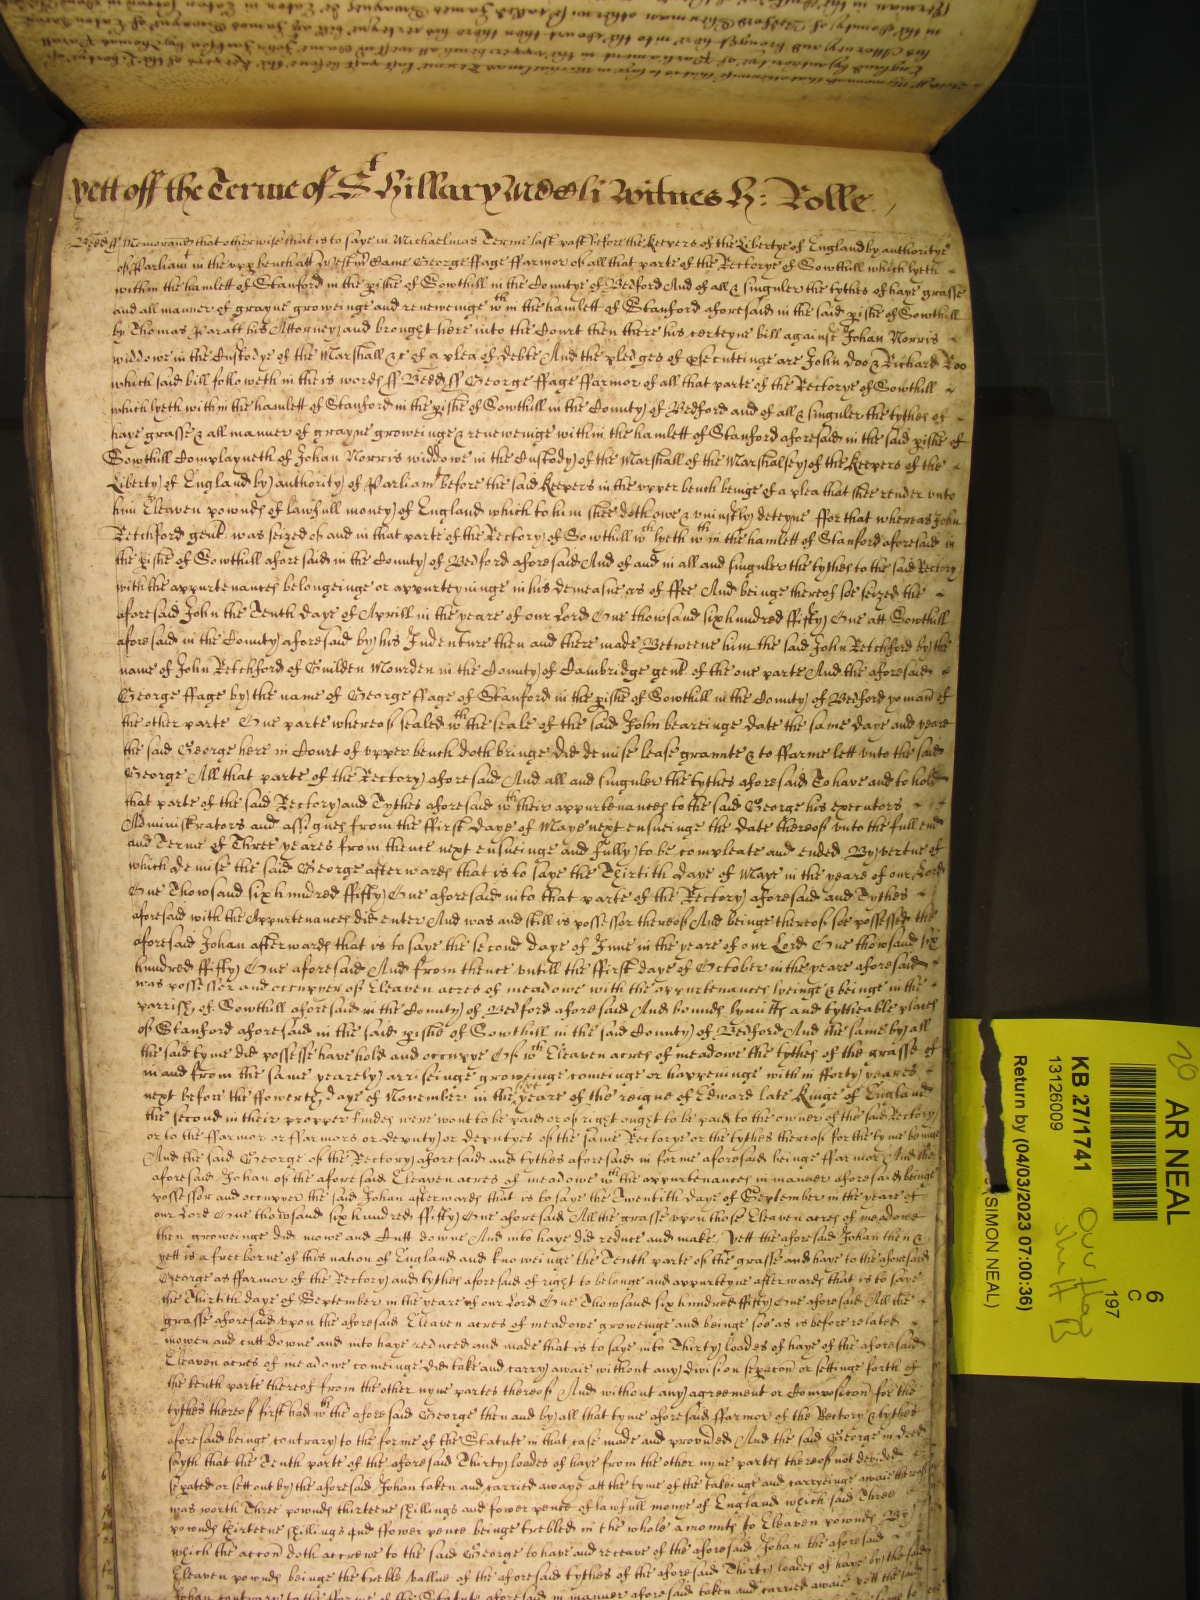 yett off the Terme of St Hillary Mdcli Witnes H: Rolle
Bedd ss Memorand that otherwise that is to saye in Michaelmas Terme last past before the keepers of the Libertye of England by authoritye
of Parliamt in the upp bench att Westm Came George ffage ffarmor of all that parte of the Rectorye of Sowthill which lyeth
within the hamlett of Stanford in the pishe of Sowthill in the Countye of Bedford And of all & singuler the tythes of haye grasse
and all manner of grayne groweinge and reneweinge wth in the hamlett of Stanford aforesaid in the said pishe of Sowthill
by Thomas Paratt his Attorney and brought here into the Court then there his certeyne bill against Johan Norris
widdowe in the Custodye of the Marshall &c of a plea of debte And the pledges of psecuteinge are John Doo & Richard Roo
which said bill followeth in theis words ss Bedd ss George ffage ffarmor of all that parte of the Rectorye of Sowthill
which lyeth within the hamlett of Stanford in the pishe of Sowthill in the County of Bedford and of all & singuler the tythes of
haye grasse & all manner of grayne groweinge & reneweinge within the hamlett of Stanford aforesaid in the said pishe of
Sowthill Complayneth of Johan Norris widdowe in the Custody of the Marshall of the Marshalsey of the keepers of the
Liberty of England by authority of Parliamt before the said keepers in the upper bench beinge of a plea that shee render unto
him Eleaven pownds of lawfull money of England which to him shee doth owe & uniustly deteyne ffor that whereas John
Retchford gent was seized of and in that parte of the Rectory of Sowthill wch lyeth wth in the hamlett of Stanford aforesaid in
the pishe of Sowthill aforesaid in the County of Bedford aforesaid And of and in all and singuler the tythes to the said Rectory
with the appurtenances belongeinge or apperteyninge in his demeasne as of ffee And beinge thereof soe seized the
aforesaid John the Tenth daye of Aprill in the yeare of our Lord One thowsand six hundred ffifty One att Sowthill
aforesaid in the County aforesaid by his Indenture then and there made Betweene him the said John Retchford by the
name of John Retchford of Guilden Morden in the County of Cambridge gent of the one parte And the aforesaid
George ffage by the name of George ffage of Stanford in the pishe of Sowthill in the County of Bedford yoman of
the other parte One parte whereof sealed wth the seale of the said John beareinge date the same daye and yeare
the said George here in Court of upper bench doth bringe did demise lease graunte & to ffarme lett unto the said
George All that parte of the Rectory aforesaid And all and singuler the tythes aforesaid To have and to hold
that parte of the said Rectory and Tythes aforesaid wth their appurtenances to the said George his executors
Administrators and assignes from the ffirst daye of Maye next ensueinge the date thereof unto the full end
and Terme of Three yeares from thence next ensueinge and fully to be compleate and ended By vertue of
which demise the said George afterwards that is to saye the Thirtith daye of Maye in the yeare of our Lord
One Thowsand six hundred ffifty One aforesaid into that parte of the Rectory aforesaid and Tythes
aforesaid with the Appurtenances did enter And was and still is possessor thereof And beinge thereof soe possessed the
aforesaid Johan afterwards that is to saye the second daye of June in the yeare of our Lord One thowsand six
hundred ffifty One aforesaid And from thence untill the ffirst daye of October in the yeare aforesaid
was possessor and occupyer of Eleaven acres of meadowe with the appurtenances lyeinge & beinge in the
parrish of Sowthill aforesaid in the County of Bedford aforesaid And bounds lymitts and tytheable places
of Stanford aforesaid in the said pishe of Sowthill in the said County of Bedford And the same by all
the said tyme did possesse have hold and occupye Of wch Eleaven acres of meadowe the tythes of the grasse of
in and from the same yearely ariseinge groweinge comeinge or happeninge with in fforty yeares
next before the ffowerth daye of November in the first yeare of the reigne of Edward late Kinge of England
the second in their propper kindes were wont to be paid or of right ought to be paid to the owner of the said Rectory
or to the ffarmor or ffarmors or deputy or deputyes of the same Rectorye or the tythes thereof for the tyme beinge
And the said George of the Rectory aforesaid and tythes aforesaid in forme aforesaid beinge ffarmor And the
aforesaid Johan of the aforesaid Eleaven acres of meadowe wth the appurtenances in manner aforesaid beinge
possessor and occupyer the said Johan afterwards that is to saye the Twentith daye of September in the yeare of
our Lord One thowsand six hundred ffifty One aforesaid All the grasse upon those Eleaven acres of meadowe
then groweinge did mowe and Cutt downe And into haye did reduce and make Yett the aforesaid Johan then &
yett is a free borne of this nation of England and knoweinge the Tenth parte of the grasse and haye to the aforesaid
George as ffarmor of the Rectory and tythes aforesaid of right to belonge and apperteyne afterwards that is to saye
the Thirtith daye of September in the yeare of our Lord One Thowsand six hundred ffifty One aforesaid All the
grasse aforesaid upon the aforesaid Eleaven acres of meadowe groweinge and beinge soe as is before related
mowen and cutt downe and into haye reduced and made that is to saye into Thirty loades of haye of the aforesaid
Eleaven acres of meadowe comeinge did take and carry awaie without any division sepacon or settinge forth of
the tenth parte thereof from the other nyne partes thereof And without any agreement or Composicon for the
tythes thereof first had wth the aforesaid George then and by all that tyme aforesaid ffarmor of the Rectory & tythes
aforesaid beinge contrary to the forme of the Statute in that case made and provided And the said George in deed
sayth that the Tenth parte of the aforesaid Thirty loades of haye from the other nyne partes thereof not devided
sepated or sett out by the aforesaid Johan taken and carried awaye att the tyme of the takeinge and carryeinge awaie thereof
was worth Three pownds thirteene shillings and fower pence of lawfull monye of England which said Three
pownds thirteene shillings and ffower pence beinge trebled in the whole amounts to Eleaven pownds By
which the accon doth accrewe to the said George to have and receave of the aforesaid Johan the aforesaid
Eleaven pownds beinge the treble vallue of the aforesaid tythes of the aforesaid Thirty loades of haye by the said
Johan contrary to the forme of the Statute aforesaid in manner aforesaid taken and carried awaie yett the said
AR NEAL
6
C
197
KB 27/1741
13126009
Return by (04/03/2023 07:00:36)
(SIMON NEAL)